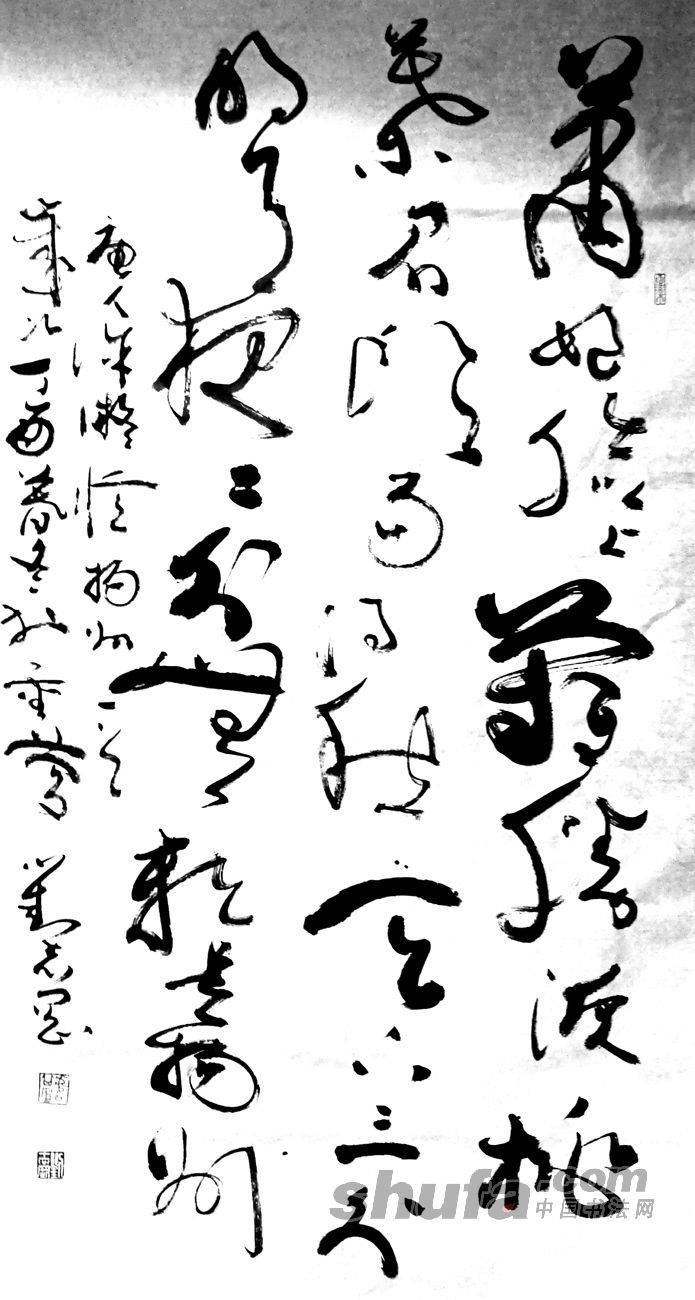 萧娘脸薄胜泪桃
叶眉头易得愁天下三分
明月夜二分无赖是扬州
唐人徐凝忆扬州一首
岁次丁酉暮冬于 刘志
shufa.com
中国书法网